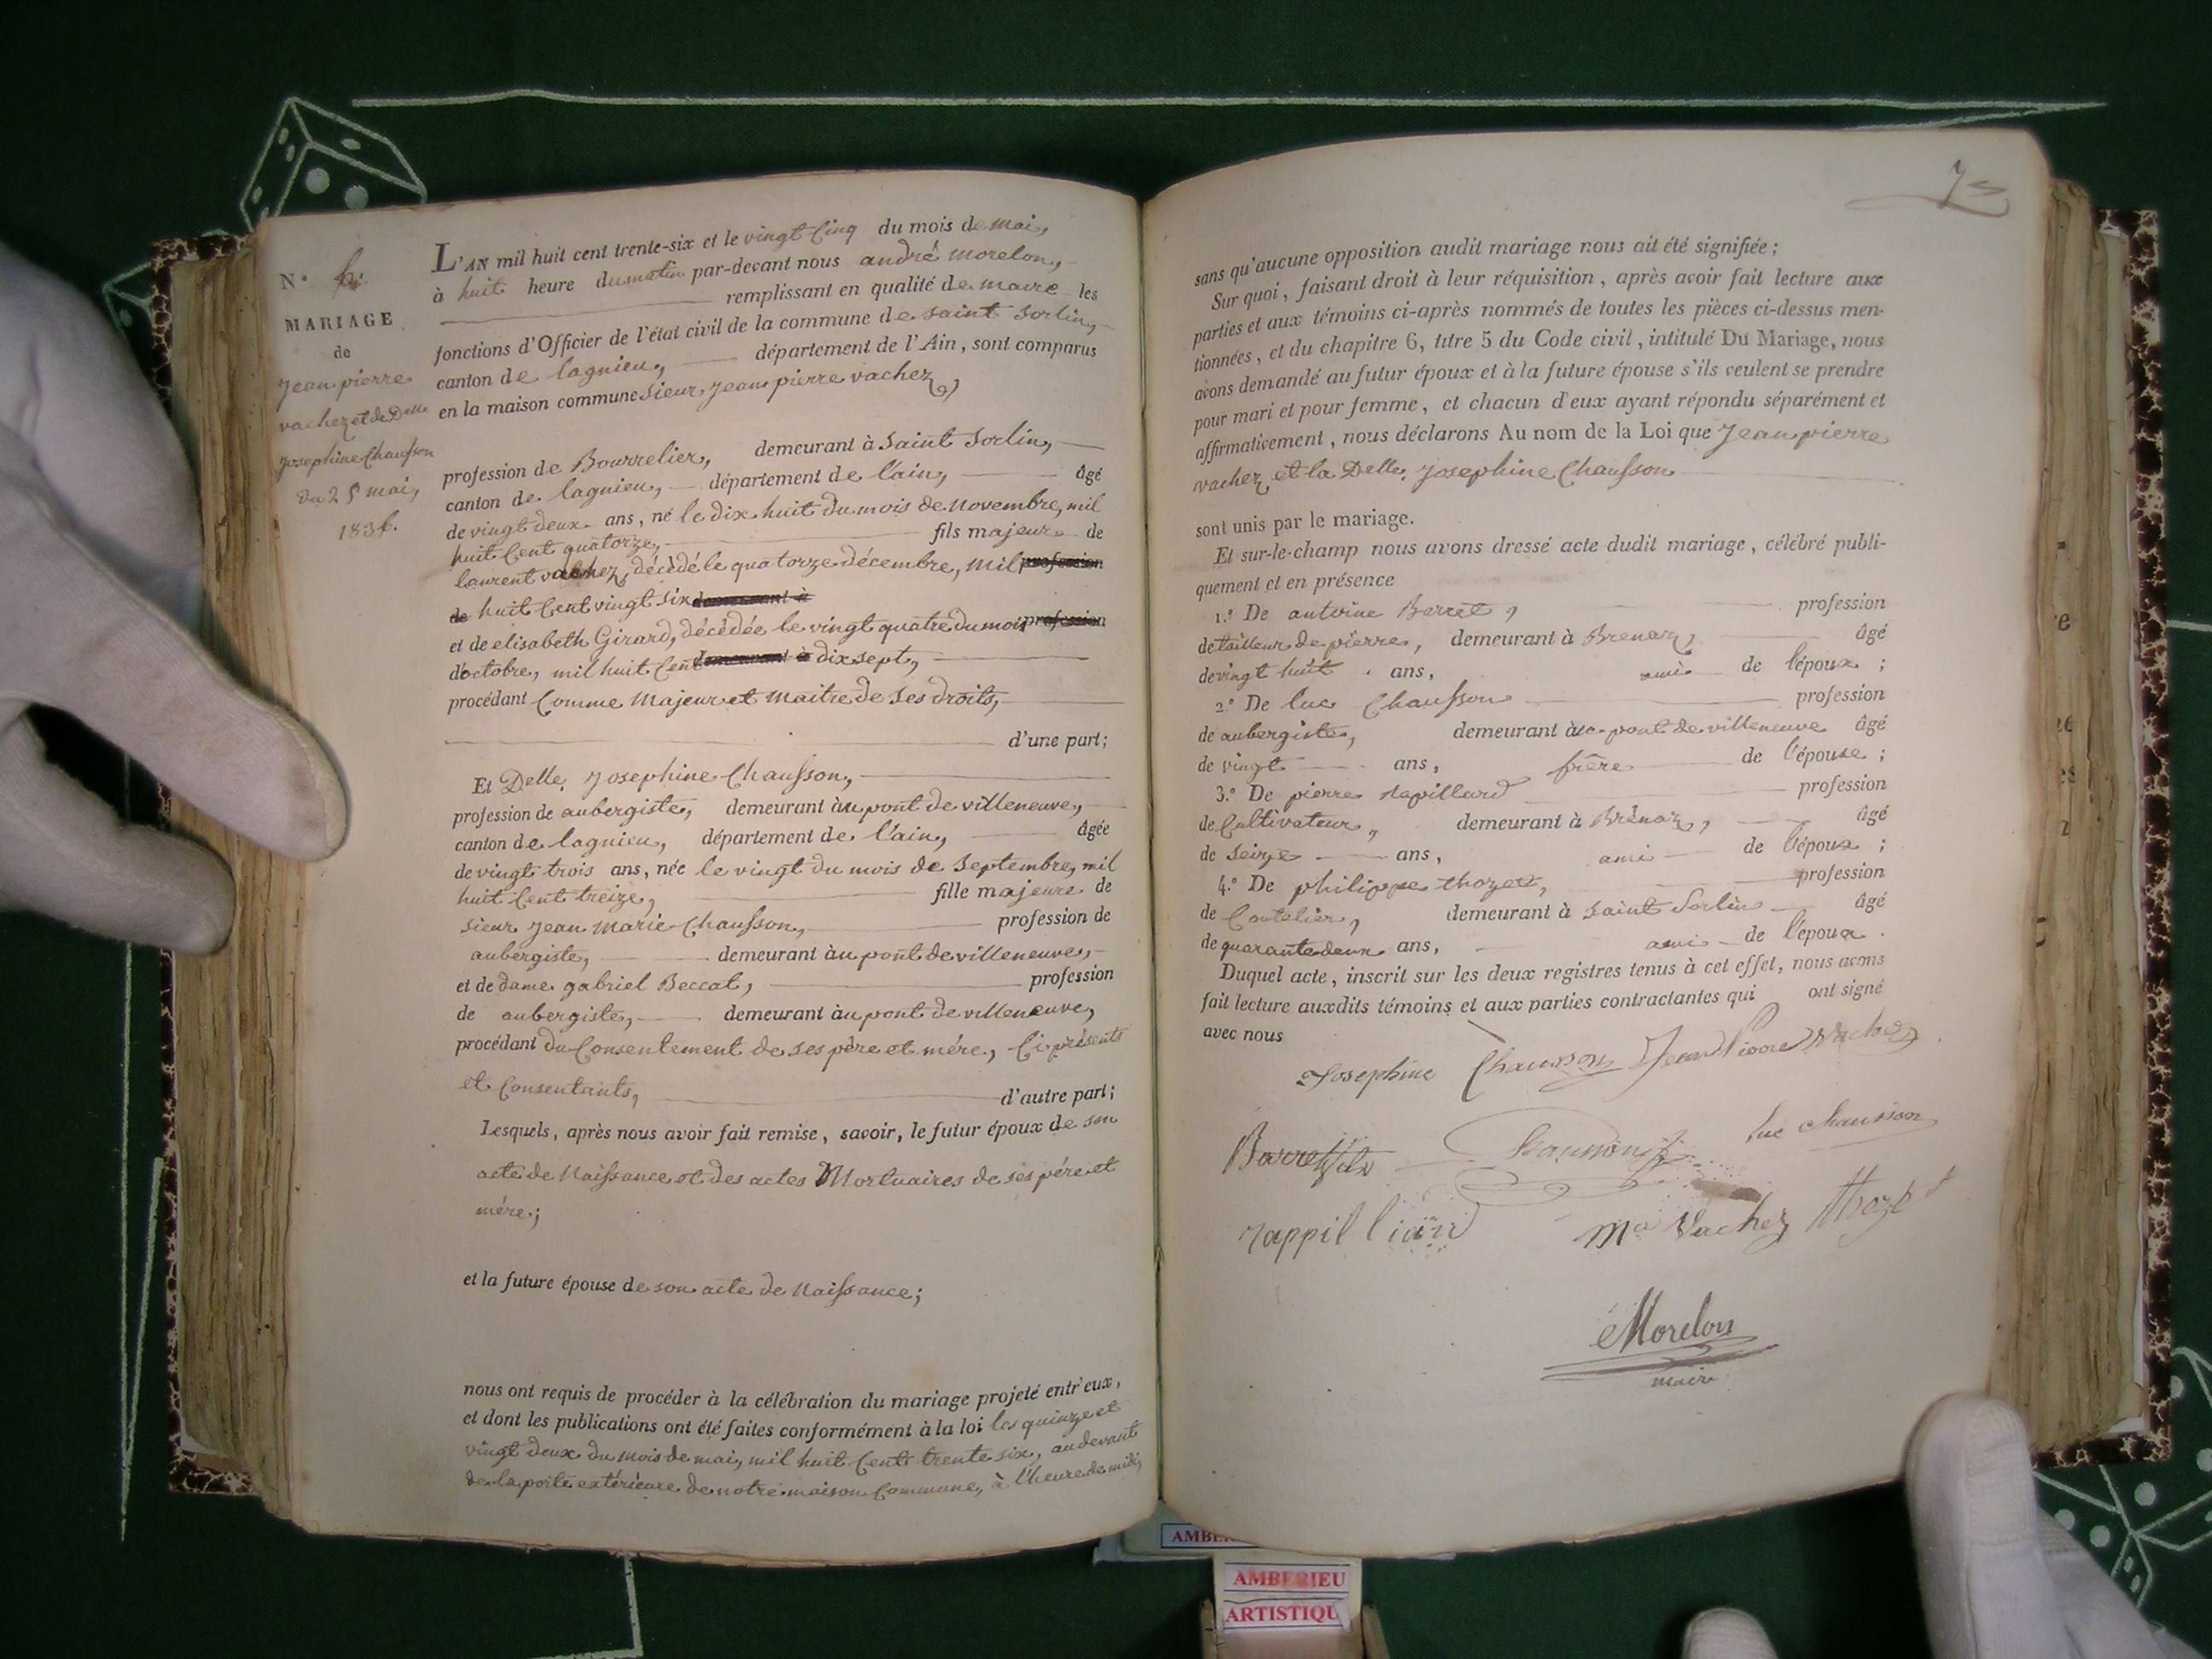 N° 6.
MARIAGE
de
Jean pierre
vachez et de Delle
Josephine Chausson
du 25 mai,
1836.
L'AN mil huit cent trente-six et le vingt Cinq du mois de mai,
à huit heure du matin par-devant nous andré morelon,
remplissant en qualité de maire les
fonctions d'Officier de l'état civil de la commune de saint Sorlin,
canton de lagnieu, département de l'Ain, sont comparus
en la maison commune Sieur, Jean pierre vachez,
profession de Bourrelier, demeurant à Saint Sorlin,
canton de lagnieu, département de l'ain, âgé
de vingt deux ans, né le dix huit du mois de novembre, mil
huit Cent quatorze, fils majeur de
laurent vachez, décédé le quatorze décembre, mil profession
de huit Cent vingt six demeurant à
et de elisabeth Girard, décédée le vingt quatre du mois profession
d'octobre, mil huit Cent demeurant à dix sept,
procédant Comme Majeur et maitre de ses droits,
d'une part;
Et Delle, Josephine Chausson,
profession de aubergiste, demeurant àu pont de villeneuve,
canton de lagnieu, département de l'ain, âgée
de vingt trois ans, née le vingt du mois de Septembre, mil
huit Cent treize, fille majeure de
sieur Jean Marie Chausson, profession de
aubergiste, demeurant àu pont de villeneuve,
et de dame gabriel Beccat, profession
de aubergiste, demeurant àu pont de villeneuve,
procédant du Consentement de ses père et mére, Ci présents
et Consentants, d'autre part;
Lesquels, après nous avoir fait remise, savoir, le futur époux de son
acte de Naissance et des actes Mortuaires de ses pére et
mére;
et la future épouse de son acte de Naissance;
nous ont requis de procéder à la célébration du mariage projeté entr'eux,
et dont les publications ont été faites conformément à la loi les quinze et
vingt deux du mois de mai, mil huit Cent trente six, au devant
de la porte extérieure de notre maison Commune, à l'heure de midi,
7
sans qu'aucune opposition audit mariage nous ait été signifiée;
Sur quoi, faisant droit à leur réquisition, après avoir fait lecture aux
parties et aux témoins ci-après nommés de toutes les pièces ci-dessus men-
tionnées, et du chapitre 6, titre 5 du Code civil, intitulé Du Mariage, nous
avons demandé au futur époux et à la future épouse s'ils veulent se prendre
pour mari et pour femme, et chacun d'eux ayant répondu séparément et
affirmativement, nous déclarons Au nom de la Loi que Jean pierre
vachez et la Delle, Josephine Chausson
sont unis par le mariage.
Et sur-le-champ nous avons dressé acte dudit mariage, célébré publi-
quement et en présence
1.° De antoine Barret, profession
de tailleur de pierre, demeurant à Brenaz, âgé
de vingt huit ans, ami de l'époux;
2.° De luc Chausson profession
de aubergiste, demeurant àu pont de villeneuve âgé
de vingt ans, frère de l'épouse;
3.° De pierre rapillard profession
de Cultivateur, demeurant à Brénaz, âgé
de seize ans, ami de l'époux;
4.° De philippe thozet, profession
de Coutelier, demeurant à Saint Sorlin âgé
de quarante deux ans, ami de l'époux.
Duquel acte, inscrit sur les deux registres tenus à cet effet, nous avons
fait lecture auxdits témoins et aux parties contractantes qui ont signé
avec nous
Josephine Chausson Jean Pierre Vachez
Barret fils Chausson luc chausson
rappilliard Ma Vachez thozet
Morelon
maire
AMBERIEU
ARTISTIQU